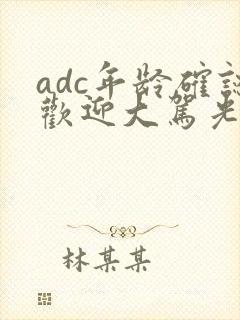 adc年龄確認
歡迎大駕光
林某某